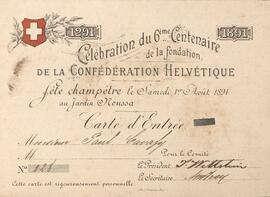 1291 1891
Célébration du 6ème Centenaire
de la fondation
DE LA CONFÉDÉRATION HELVÉTIQUE
fête champêtre le Samedi 1er Août 1891
au Jardin Moussa
Carte d'Entrée
Monsieur Paul
M
Pour le Comité
No 128
Le Président
Le Secrétaire
Cette carte est rigoureusement personnelle.